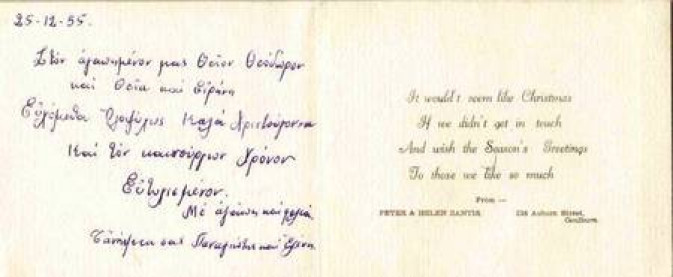 25-12-55.
Στον άγαπημένον μας Θείον Θεόδωρον
και Θεία και Είρήνη
Ευχόμεθα Όλοψύχως Καλά Χριστούγεννα
Και Τον καινούργιον Χρόνον
Εύτυχισμένον.
Μέ άγάπη και φιλιά
Τάνήψια σας Παναγιώτης και Ελένη
It wouldn't seem like Christmas
If we didn't get in touch
And wish the Season's Greetings
To those we like so much
From —
PETER & HELEN ZANTIS, Auburn Street,
Goulburn.